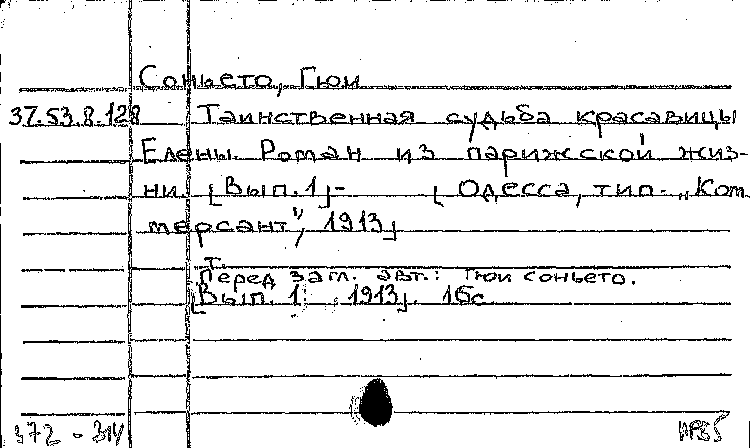 Соньето, Гюи
37.53.8.128 Таинственная судьба красавицы
Елены. Роман из парижской жиз-
ни. [Вып. 1]- [Одесса, тип. „Ком
мерсант", 1913]
Перед загл. авт.: Гюи Соньето.
[Вып. 1. 1913]. 16с
372 - 314